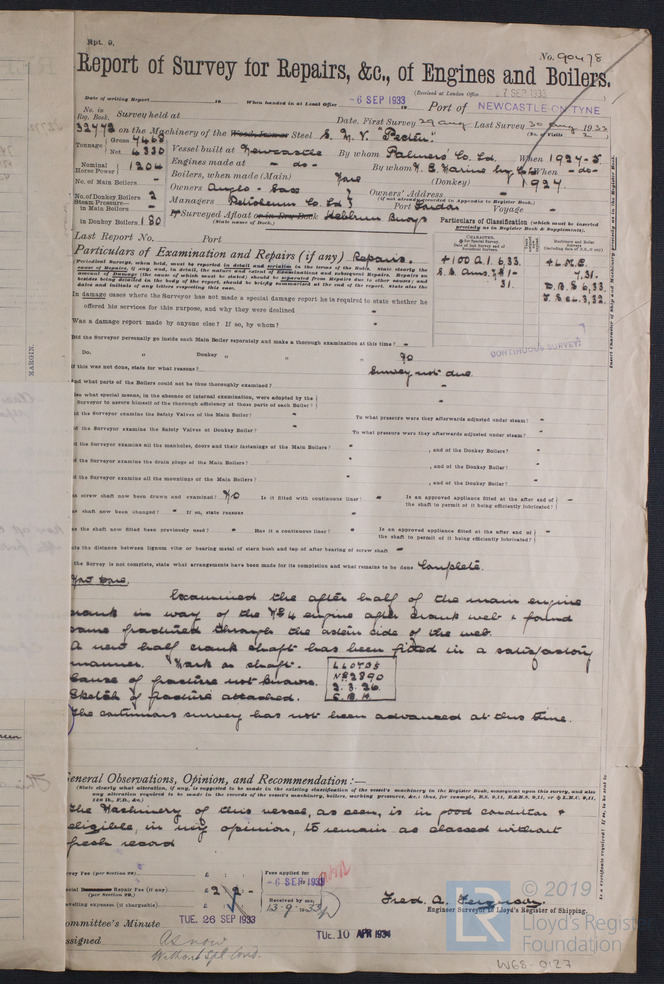 Rpt. 9.
No. 90478
Report of Survey for Repairs, &c., of Engines and Boilers.
(Received at London Office 7 SEP 1933
Date of writing Report 19 When handed in at Local Office - 6 SEP 1933 19 Port of NEWCASTLE-ON-TYNE
No. in Reg. Book. Survey held at Date. First Survey 29 Aug Last Survey 30 Aug 1933
32772 on the Machinery of the Wood, Iron or Steel S. M. V. "Pecten". (No. of Visits 2)
Tonnage Gross 7468
Net 4330
Vessel built at Newcastle By whom Palmers' Co. Ld. When 1927-5
Nominal Horse Power 1204
Engines made at - do- By whom N. E. Marine Eng Co Ld When -do-
No. of Main Boilers -
Boilers, when made (Main) None (Donkey) 1927.
No. of Donkey Boilers 2
Owners Anglo-Saxon Owners' Address
(if not already recorded in Appendix to Register Book.)
Steam Pressure in Main Boilers -
Managers Petroleum Co. Ld Port London Voyage -
in Donkey Boilers 180
If Surveyed Afloat or in Dry Dock Hebburn Buoys
(State name of Dock.)
Particulars of Classification (which must be inserted precisely as in Register Book & Supplements).
Last Report No. Port
Particulars of Examination and Repairs (if any) Repairs.
+100 A.1. 6.33. +L.M.C.
7.31.
31. D.B.S 6,33.
T.S 3,32.
CONTINUOUS SURVEY
In damage cases where the Surveyor has not made a special damage report he is required to state whether he
offered his services for this purpose, and why they were declined
Was a damage report made by anyone else? If so, by whom?
Did the Surveyor personally go inside each Main Boiler separately and make a thorough examination at this time? -
Do. " Donkey " " " " No
If this was not done, state for what reasons? Survey not due
And what parts of the Boilers could not be thus thoroughly examined? -
Also what special means, in the absence of internal examination, were adopted by the
Surveyor to assure himself of the thorough efficiency of those parts of each Boiler? -
Did the Surveyor examine the Safety Valves of the Main Boiler? - To what pressure were they afterwards adjusted under steam? -
Did the Surveyor examine the Safety Valves of Donkey Boiler? - To what pressure were they afterwards adjusted under steam? -
Did the Surveyor examine all the manholes, doors and their fastenings of the Main Boilers? - , and of the Donkey Boiler? -
Did the Surveyor examine the drain plugs of the Main Boilers? - , and of the Donkey Boiler? -
Did the Surveyor examine all the mountings of the Main Boilers? - , and of the Donkey Boiler? -
as screw shaft now been drawn and examined? No Is it fitted with continuous liner? - Is an approved appliance fitted at the after end of the shaft to permit of it being efficiently lubricated? -
as shaft now been changed? - If so, state reasons
as the shaft now fitted been previously used? - Has it a continuous liner? - Is an approved appliance fitted at the after end of the shaft to permit of it being efficiently lubricated? -
ate the distance between lignum vitæ or bearing metal of stern bush and top of after bearing of screw shaft -
the Survey is not complete, state what arrangements have been made for its completion and what remains to be done Complete.
Now Done.
Examined the after half of the main engine
crank in way of the No 4 engine after crank web & found
same fractured through the astern side of the web.
A new half crank shaft has been fitted in a satisfactory
manner. Mark on shaft.
Cause of fracture not known.
Sketch of fracture attached.
LLOYDS
No 2890
2.3.26.
The continuous survey has not been advanced at this time.
General Observations, Opinion, and Recommendation:—
(State clearly what alteration, if any, is suggested to be made in the existing classification of the vessel's machinery in the Register Book, consequent upon this survey, and also
The Machinery of this vessel, as seen, is in good condition &
eligible, in my opinion, to remain as classed without
fresh record
Survey Fee (per Section 29.) £ : : Fees applied for - 6 SEP 1933
Special Repair Fee (if any) (per Section 29.) £ 2 : 2 : -
Travelling expenses (if chargeable) £ : : Received by me, 13-9-1933
Fred. A. Ferguson
Engineer Surveyor to Lloyd's Register of Shipping.
Committee's Minute TUE. 26 SEP 1933 TUE. 10 APR 1934
Assigned As now
Without Spl Cond.
MARGIN.
© 2019
Lloyd's Register
Foundation
W68-0127